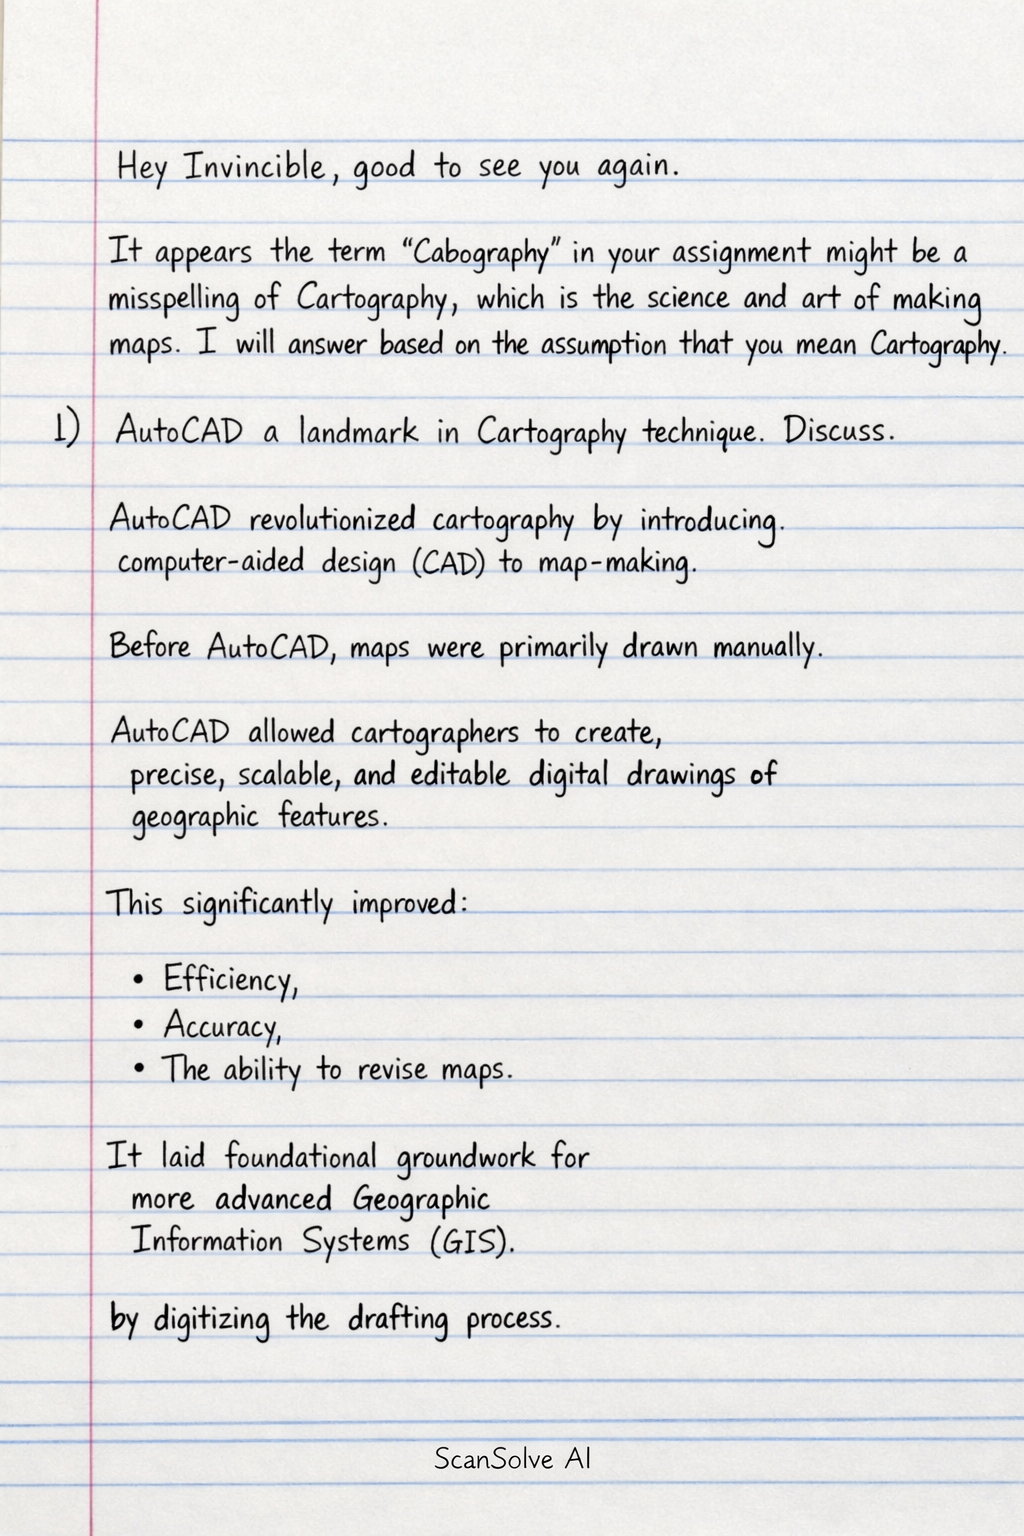 Hey Invincible, good to see you again.
It appears the term “Cabography” in your assignment might be a
misspelling of Cartography, which is the science and art of making
maps. I will answer based on the assumption that you mean Cartography.
1) AutoCAD a landmark in Cartography technique. Discuss.
AutoCAD revolutionized cartography by introducing.
computer-aided design (CAD) to map-making.
Before AutoCAD, maps were primarily drawn manually.
AutoCAD allowed cartographers to create,
precise, scalable, and editable digital drawings of
geographic features.
This significantly improved:
• Efficiency,
• Accuracy,
• The ability to revise maps.
It laid foundational groundwork for
more advanced Geographic
Information Systems (GIS).
by digitizing the drafting process.
ScanSolve AI